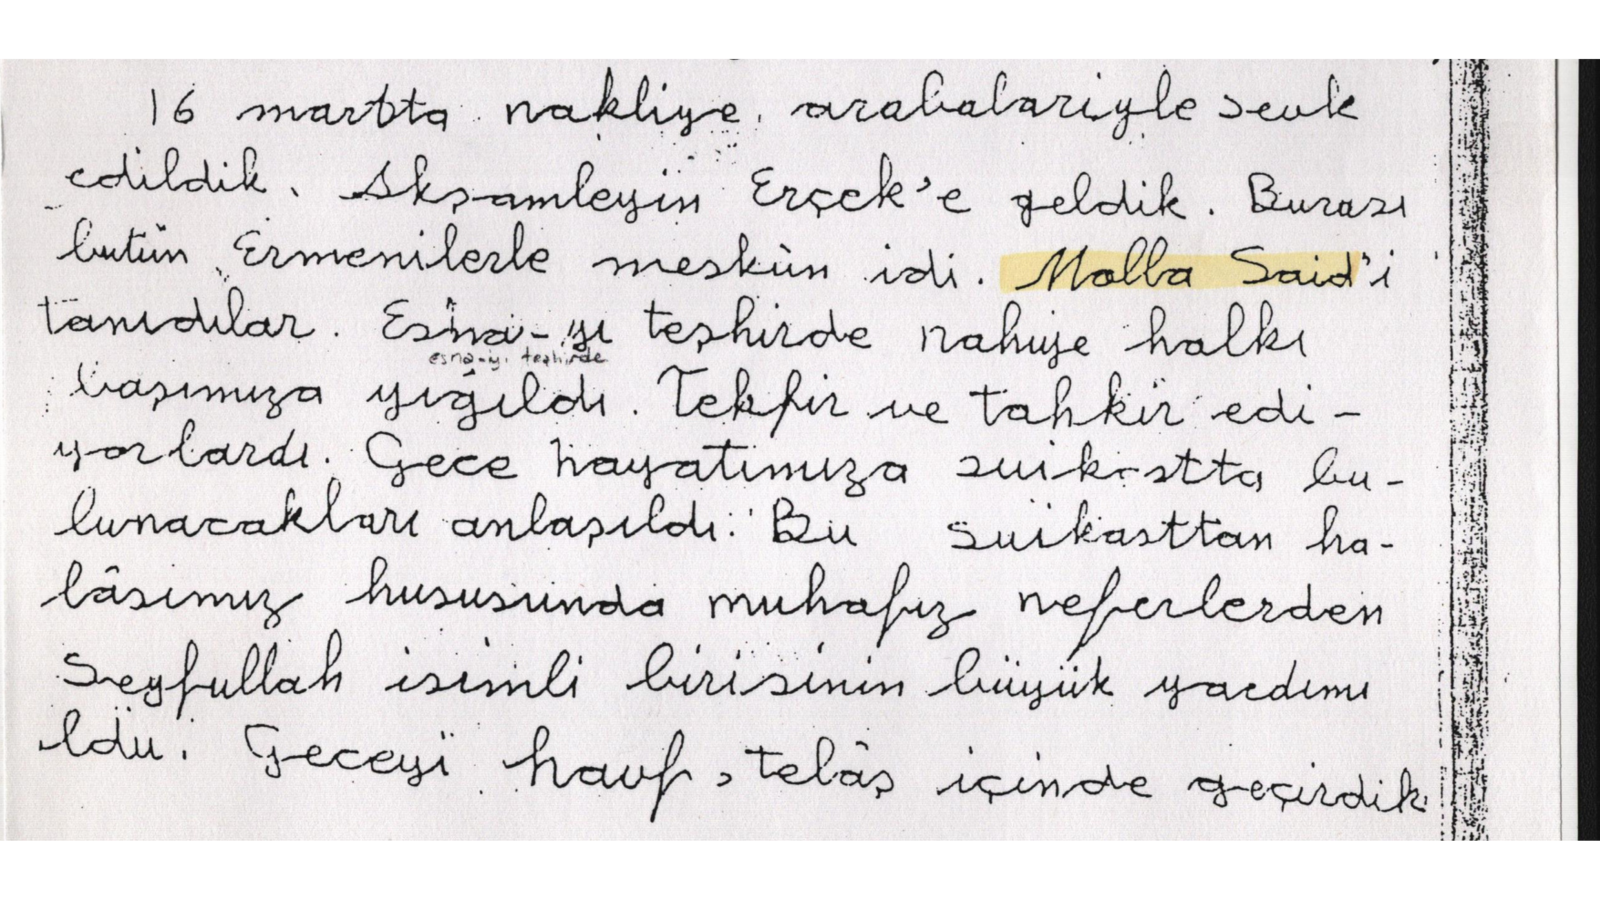 16 martta nakliye arabalariyle sevk
edildik. Akşamleyin Erçek'e geldik. Burası
butün Ermenilerle meskûn idi. Molla Said'i
tanıdılar. Esna-yı teşhirde nahiye halkı
esna-yı teşhirde
başımıza yığıldı. Tekfir ve tahkir edi-
yorlardı. Gece hayatımıza suikastta bu-
lunacakları anlaşıldı. Bu suikasttan ha-
lâsımız hususunda muhafız neferlerden
Seyfullah isimli birisinin büyük yardımı
ldu. Geceyi havf, telâş içinde geçirdik